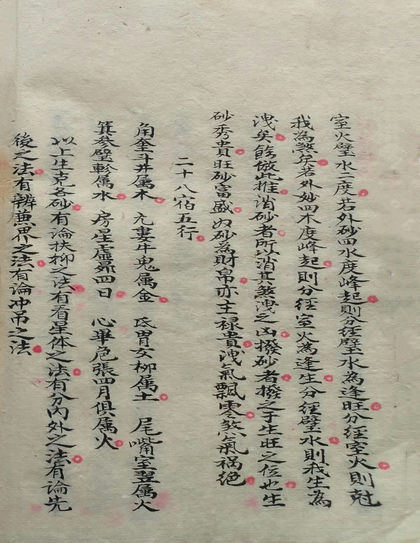 室火璧水二度若外砂四水度峰起則分經璧水為逢旺分經室火則尅
我為煞矣若外砂四木度峰起則分經室火為逢生分經璧水則我生為
洩矣餘倣此推消砂者所以消其煞洩之凶撥砂者撥之于生旺之位也生
砂秀貴旺砂富盛奴砂為財帛亦主禄貴洩氣飄零煞氣禍絶
二十八宿五行
角奎斗井属木 亢婁牛鬼属金 氐胃女柳属土 尾嘴室翌属火
箕參璧軫属水 房星虛昴四日 心畢危張四月俱属火
以上生克各砂有論扶抑之法有看星体之法有分內外之法有論先
後之法有辨世界之法有論冲吊之法